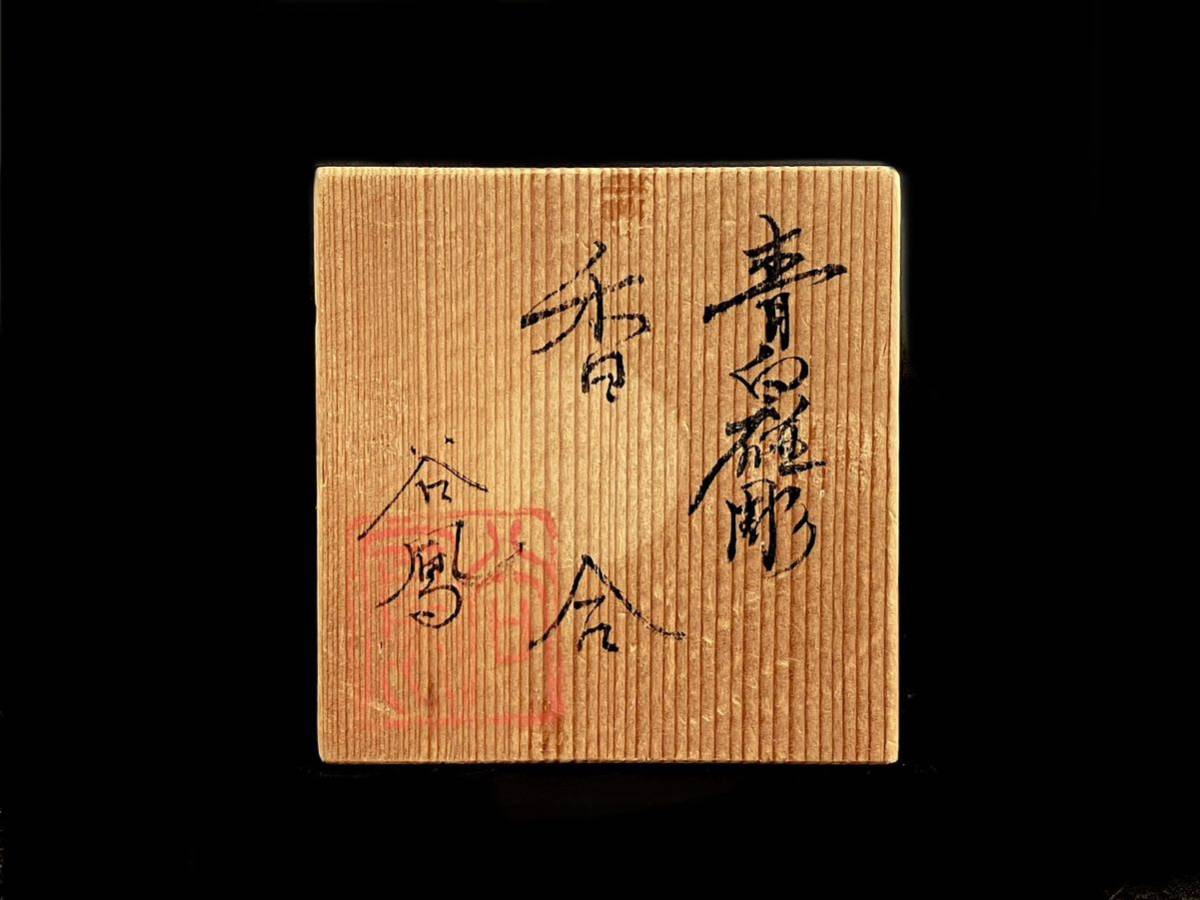 青白磁彫
香合
谷鳳